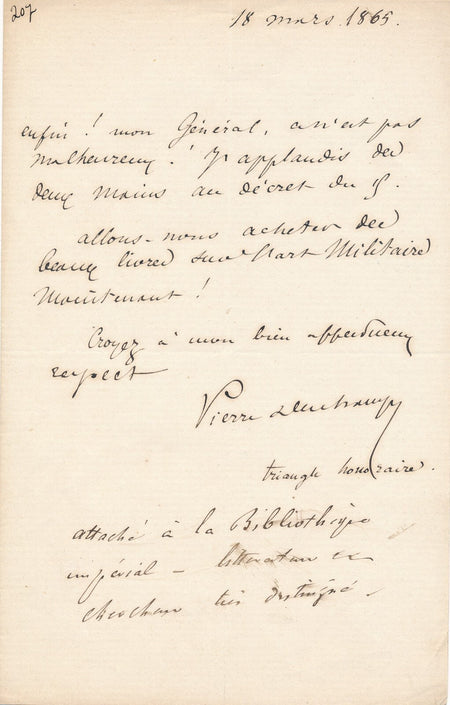 207
18 mars 1865.
enfin ! mon Général, ce n'est pas
malheureux ! J'applaudis des
deux mains au décret du 15.
allons-nous acheter des
beaux livres sur l'art Militaire
Maintenant !
Croyez à mon bien affectueux
respect
Pierre Deschamps
triangle honoraire.
attaché à la Bibliothèque
impérial - littérateur et
chercheur très distingué -